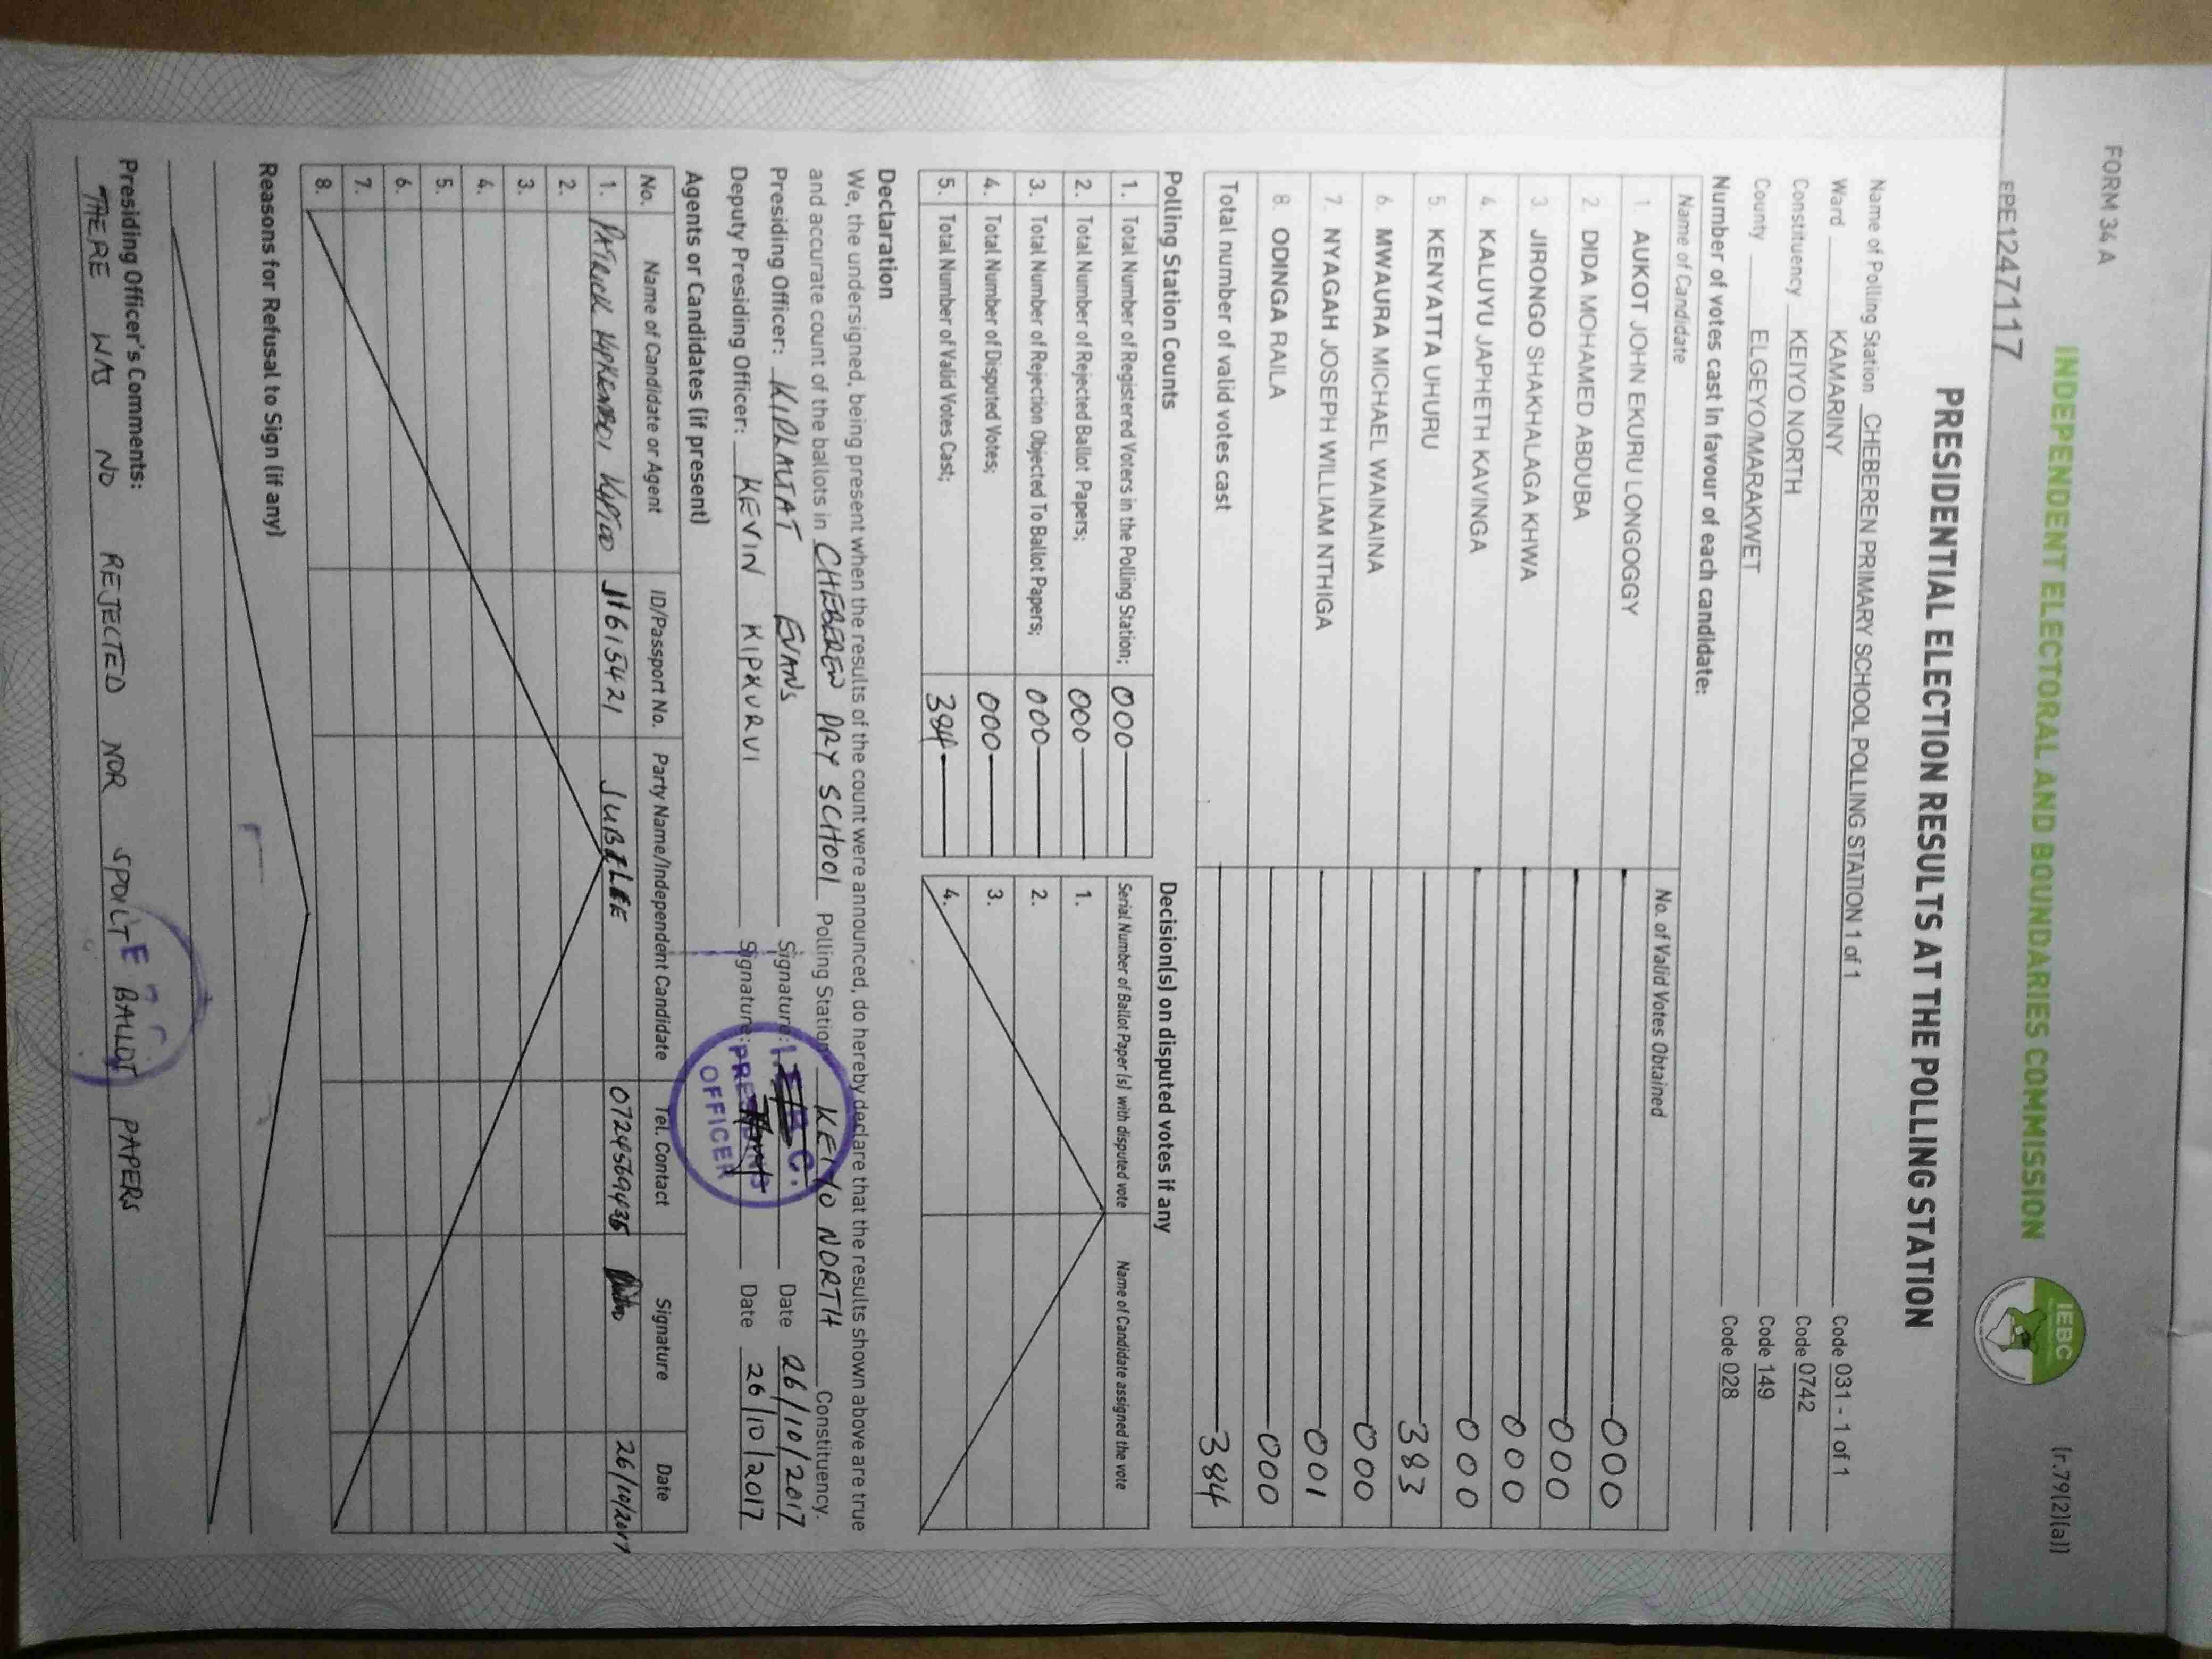 FORM 34 A
(r.79(2)(a))
INDEPENDENT ELECTORAL AND BOUNDARIES COMMISSION
IEBC
EPE1247117
PRESIDENTIAL ELECTION RESULTS AT THE POLLING STATION
Name of Polling Station CHEBEREN PRIMARY SCHOOL POLLING STATION 1 of 1 Code 031 - 1 of 1
Ward KAMARINY Code 0742
Constituency KEIYO NORTH Code 149
County ELGEYO/MARAKWET Code 028
Number of votes cast in favour of each candidate:
Name of Candidate No. of Valid Votes Obtained
1. AUKOT JOHN EKURU LONGOGGY 000
2. DIDA MOHAMED ABDUBA 000
3. JIRONGO SHAKHALAGA KHWA 000
4. KALUYU JAPHETH KAVINGA 000
5 KENYATTA UHURU 383
6. MWAURA MICHAEL WAINAINA 000
7. NYAGAH JOSEPH WILLIAM NTHIGA 001
8. ODINGA RAILA 000
Total number of valid votes cast 384
Polling Station Counts
1. Total Number of Registered Voters in the Polling Station; 000
2. Total Number of Rejected Ballot Papers; 000
3. Total Number of Rejection Objected To Ballot Papers; 000
4. Total Number of Disputed Votes; 000
5. Total Number of Valid Votes Cast; 384
Decision(s) on disputed votes if any
Serial Number of Ballot Paper (s) with disputed vote Name of Candidate assigned the vote
1.
2.
3.
4.
Declaration
We, the undersigned, being present when the results of the count were announced, do hereby declare that the results shown above are true
and accurate count of the ballots in CHEBEREN PRY SCHOOL Polling Station KEIYO NORTH Constituency.
Presiding Officer: KIPLALTAT EVANS Signature: Date 26/10/2017
Deputy Presiding Officer: KEVIN KIPKURUI Signature: Date 26/10/2017
I.E.B.C.
PRESIDING
OFFICER
Agents or Candidates (if present)
No. Name of Candidate or Agent ID/Passport No. Party Name/Independent Candidate Tel. Contact Signature Date
1. PATRICK KIPKEMBOI 11615421 JUBILEE 26/10/2017
2.
3.
4.
5.
6.
7.
8.
Reasons for Refusal to Sign (if any)
Presiding Officer's Comments:
THERE WAS NO REJECTED NOR SPOILT BALLOT PAPERS